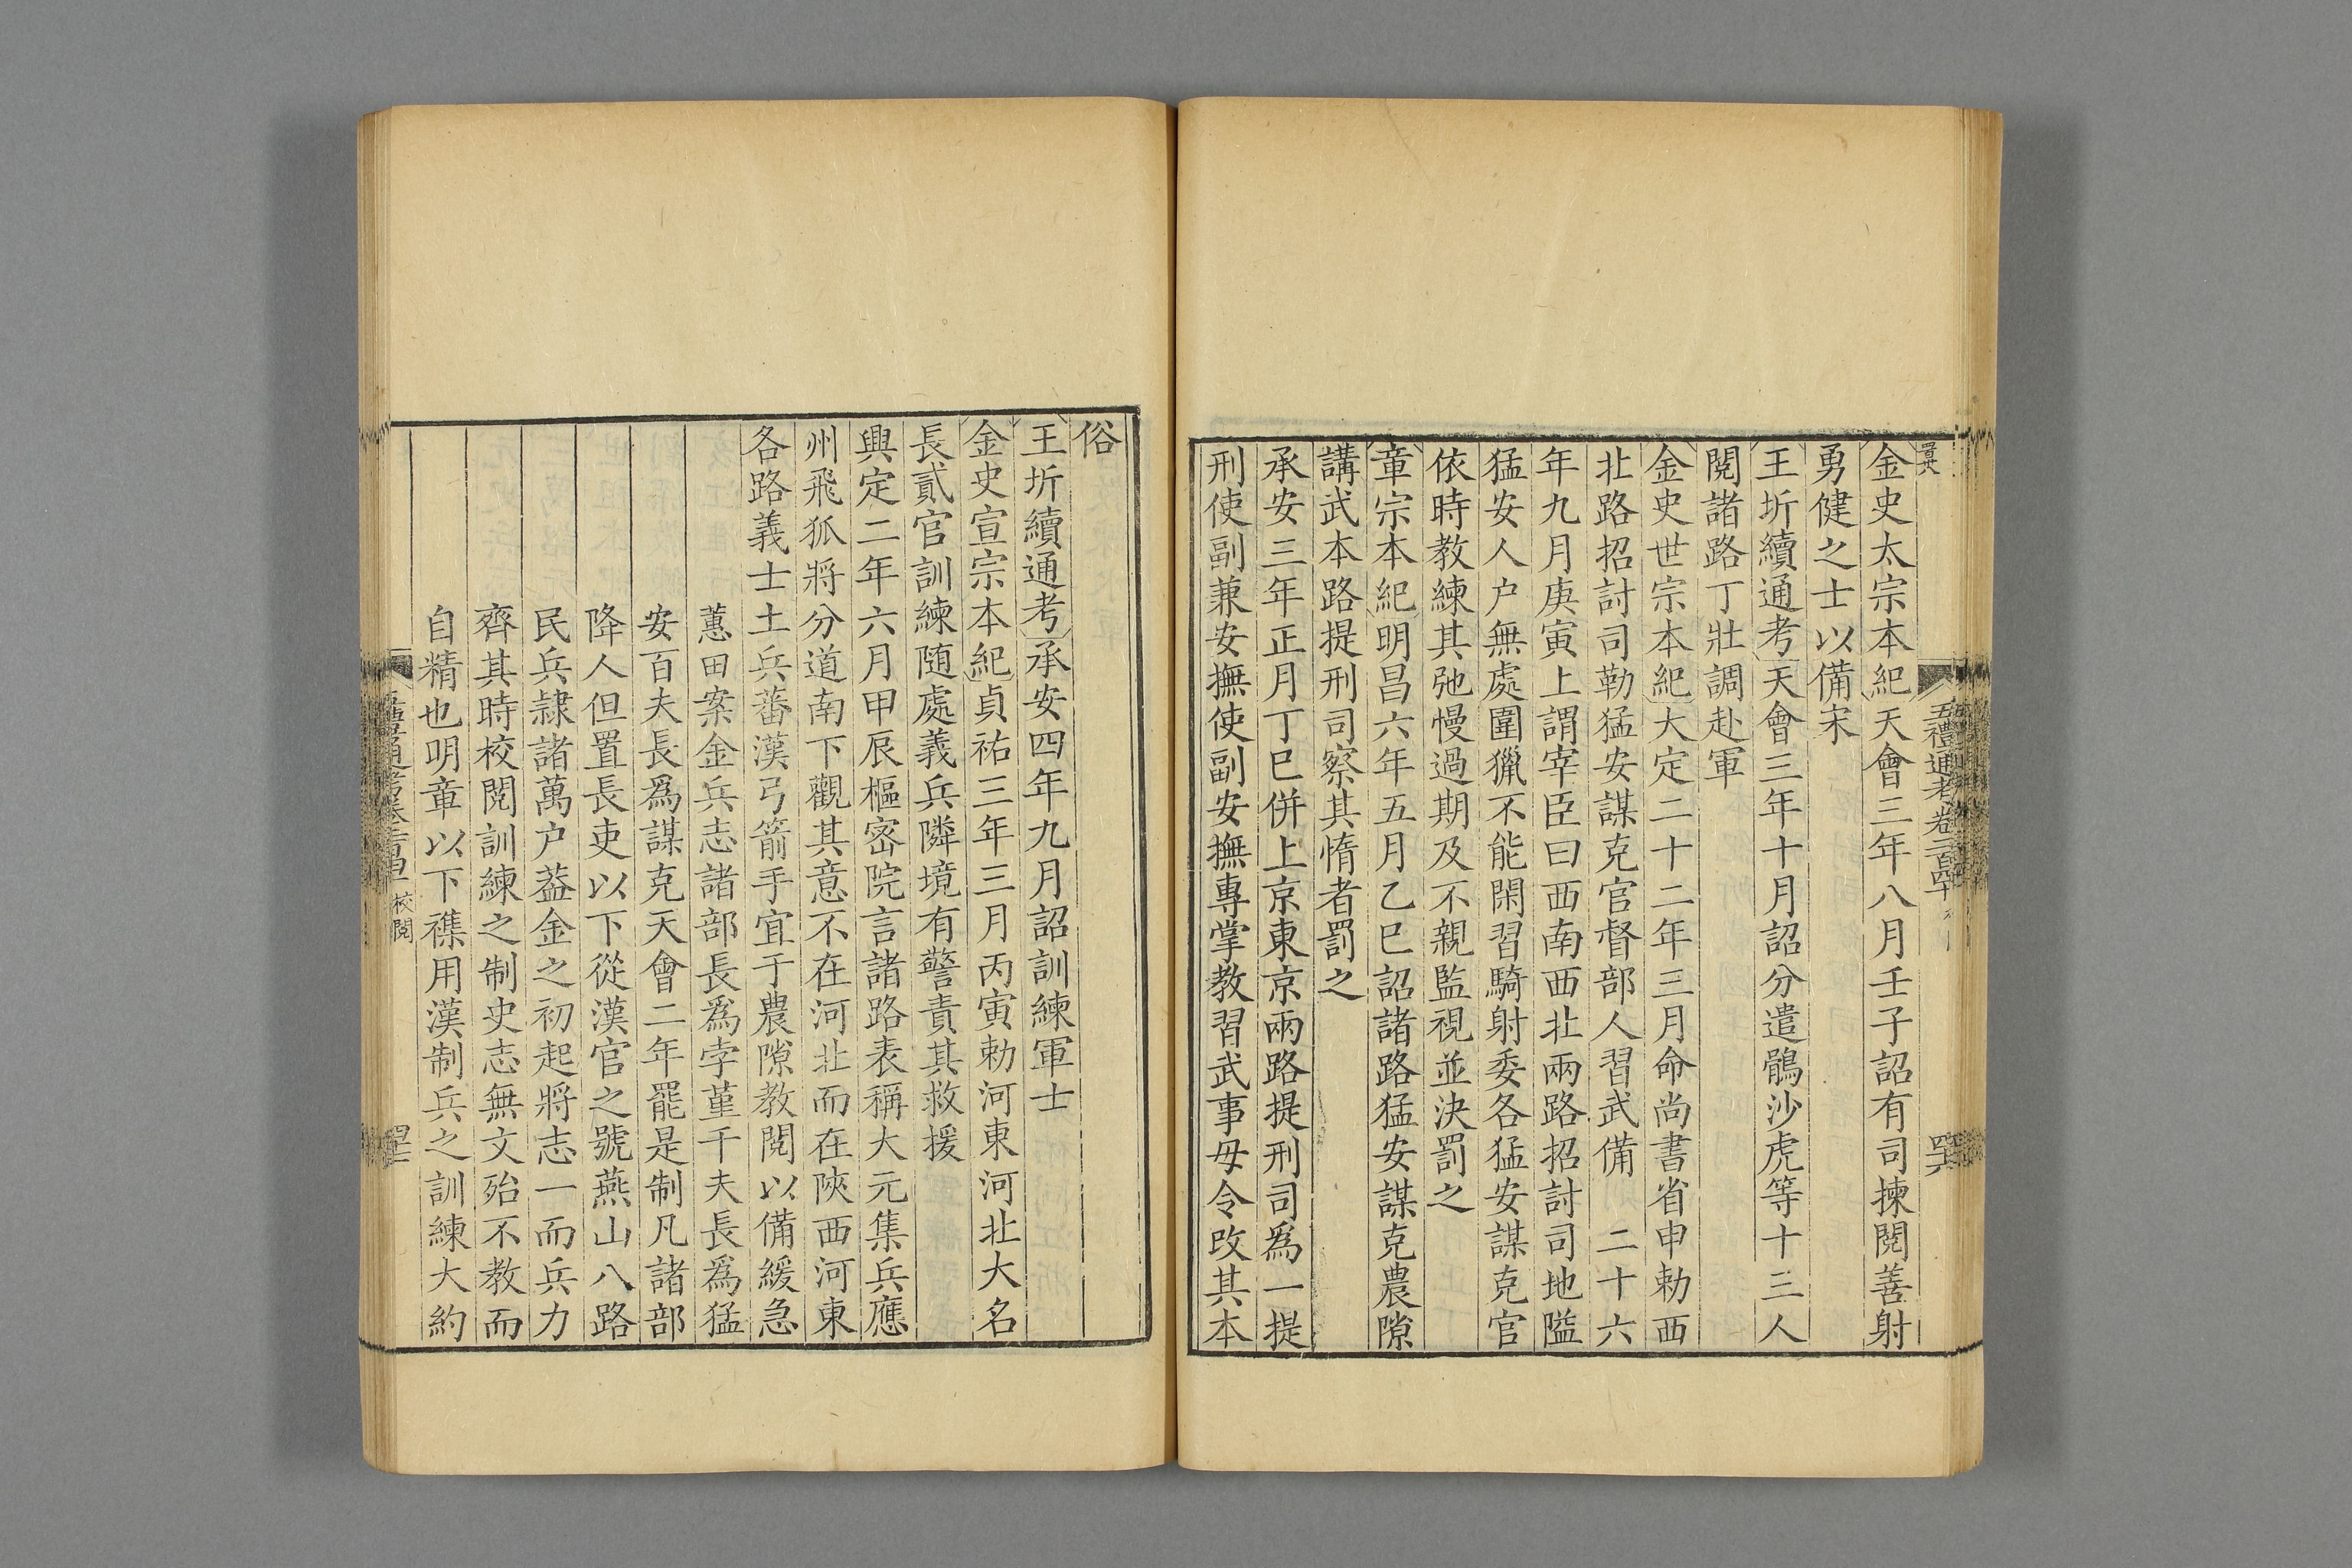 金史太宗本紀天會三年八月壬子詔有司揀閱善射
勇健之士以備宋
王圻續通考天會三年十月詔分遣鶻沙虎等十三人
閱諸路丁壯調赴軍
金史世宗本紀大定二十二年三月命尚書省申勅西
北路招討司勒猛安謀克官督部人習武備　二十六
年九月庚寅上謂宰臣曰西南西北兩路招討司地隘
猛安人户無處圍獵不能閑習騎射委各猛安謀克官
依時教練其弛慢過期及不親監視並決罰之
章宗本紀明昌六年五月乙巳詔諸路猛安謀克農隙
講武本路提刑司察其惰者罰之
承安三年正月丁巳併上京東京兩路提刑司爲一提
刑使副兼安撫使副安撫專掌教習武事毋令改其本
俗
王圻續通考承安四年九月詔訓練軍士
金史宣宗本紀貞祐三年三月丙寅勅河東河北大名
長貳官訓練随處義兵隣境有警責其救援
興定二年六月甲辰樞密院言諸路表稱大元集兵應
州飛狐將分道南下觀其意不在河北而在陜西河東
各路義士土兵蕃漢弓箭手宜于農隙教閱以備緩急
蕙田案金兵志諸部長爲孛堇千夫長爲猛
安百夫長爲謀克天會二年罷是制凡諸部
降人但置長吏以下從漢官之號燕山八路
民兵隷諸萬户葢金之初起將志一而兵力
齊其時校閱訓練之制史志無文殆不教而
自精也明章以下襍用漢制兵之訓練大約
五禮通考卷二百四十
校閱